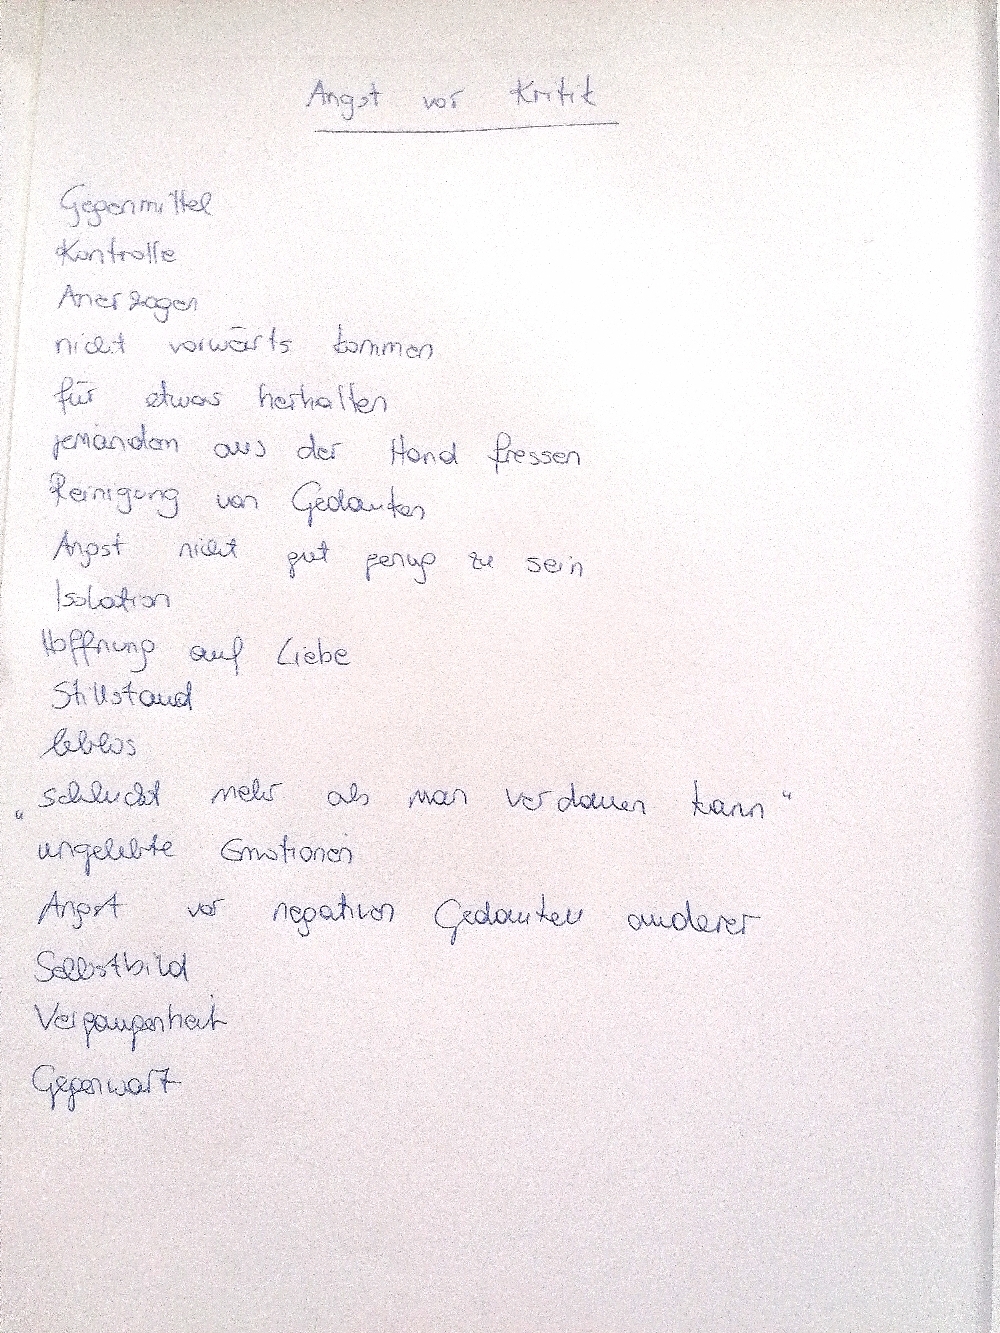 Angst vor Kritik
Gegenmittel
Kontrolle
Anerzogen
nicht vorwärts kommen
für etwas herhalten
jemanden aus der Hand fressen
Reinigung von Gedanken
Angst nicht gut genug zu sein
Isolation
Hoffnung auf Liebe
Stillstand
leblos
„schluckt mehr als man verdauen kann“
ungelebte Emotionen
Angst vor negativen Gedanken anderer
Selbstbild
Vergangenheit
Gegenwart